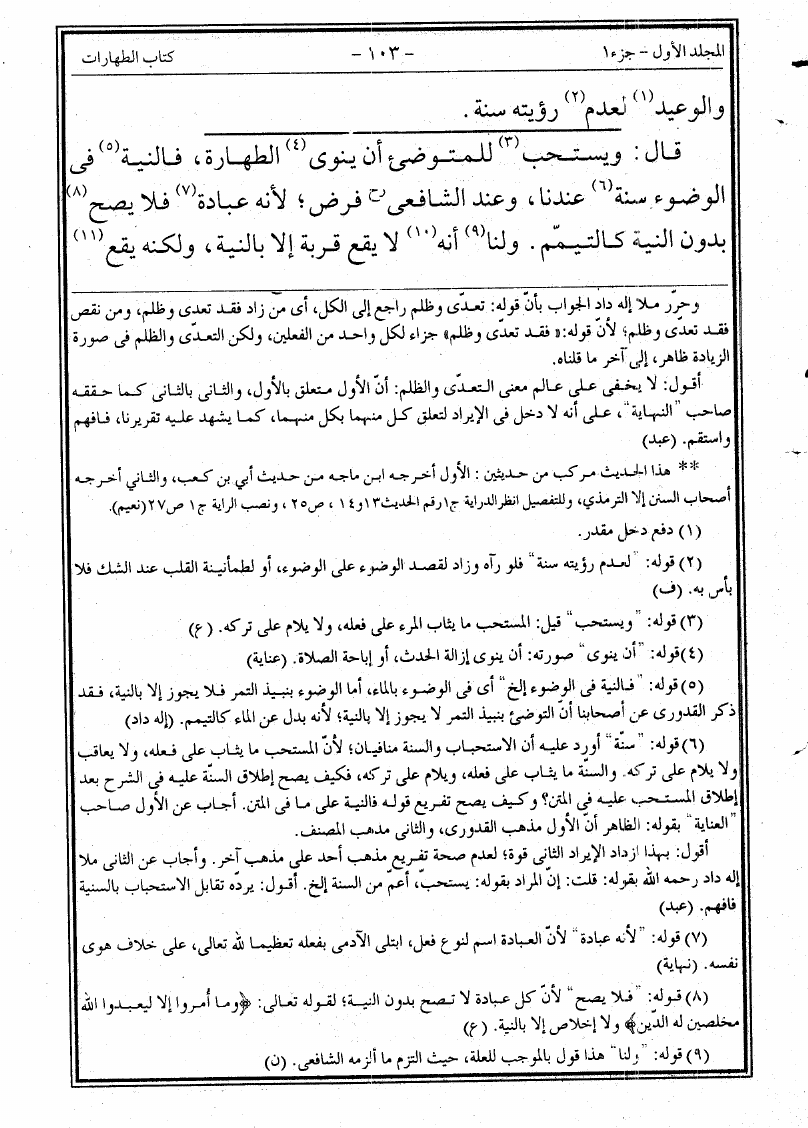 المجلد الأول – جزء١ - ١٠٣ - كتاب الطهارات
والوعيد(١) لعدم(٢) رؤيته سنة .
قال: ويستحب(٣) للمتوضئ أن ينوى(٤) الطهارة، فالنية(٥) فى
الوضوء سنة(٦) عندنا، وعند الشافعى رح فرض؛ لأنه عبادة(٧) فلا يصح(٨)
بدون النية كالتيمّم. ولنا(٩) أنه(١٠) لا يقع قربة إلا بالنية، ولكنه يقع(١١)
وحرّر ملا إله داد الجواب بأنّ قوله: تعدّى وظلم راجع إلى الكل، أى من زاد فقد تعدى وظلم، ومن نقص
فقد تعدّى وظلم؛ لأنّ قوله:« فقد تعدّى وظلم» جزاء لكل واحد من الفعلين، ولكن التعدّى والظلم فى صورة
الزيادة ظاهر، إلى آخر ما قلناه.
أقول: لا يخفى على عالم معنى التعدّى والظلم: أنّ الأول متعلق بالأول، والثانى بالثانى كما حققه
صاحب "النهاية"، على أنه لا دخل فى الإيراد لتعلق كل منهما بكل منهما، كما يشهد عليه تقريرنا، فافهم
واستقم. (عبد)
** هذا الحديث مركب من حديثين : الأول أخرجه ابن ماجه من حديث أبي بن كعب، والثاني أخرجه
أصحاب السنن إلا الترمذي، وللتفصيل انظر الدراية ج١ رقم الحديث ١٣ و ١٤ ، ص٢٥ ، ونصب الراية ج١ ص٢٧ (نعيم).
(١) دفع دخل مقدر.
(٢) قوله: "لعدم رؤيته سنة" فلو رآه وزاد لقصد الوضوء على الوضوء، أو لطمأنينة القلب عند الشك فلا
بأس به. (ف)
(٣) قوله: "ويستحب" قيل: المستحب ما يثاب المرء على فعله، ولا يلام على تركه. (ع)
(٤)قوله: "أن ينوى" صورته: أن ينوى إزالة الحدث، أو إباحة الصلاة. (عناية)
(٥) قوله: "فالنية فى الوضوء إلخ" أى فى الوضوء بالماء، أما الوضوء بنبيذ التمر فلا يجوز إلا بالنية، فقد
ذكر القدورى عن أصحابنا أنّ التوضئ بنبيذ التمر لا يجوز إلا بالنية؛ لأنه بدل عن الماء كالتيمم. (إله داد)
(٦) قوله: "سنّة" أورد عليه أن الاستحباب والسنة منافيان؛ لأنّ المستحب ما يثاب على فعله، ولا يعاقب
ولا يلام على تركه. والسنّة ما يثاب على فعله، ويلام على تركه، فكيف يصح إطلاق السنّة عليه فى الشرح بعد
إطلاق المستحب عليه فى المتن؟ وكيف يصح تفريع قوله فالنية على ما فى المتن. أجاب عن الأول صاحب
"العناية" بقوله: الظاهر أنّ الأول مذهب القدورى، والثانى مذهب المصنف.
أقول: بهذا ازداد الإيراد الثانى قوة؛ لعدم صحة تفريع مذهب أحد على مذهب آخر. وأجاب عن الثانى ملا
إله داد رحمه الله بقوله: قلت: إنّ المراد بقوله: يستحبّ، أعمّ من السنة إلخ. أقول: يردّه تقابل الاستحباب بالسنية
فافهم. (عبد)
(٧) قوله: "لأنه عبادة" لأنّ العبادة اسم لنوع فعل، ابتلى الآدمى بفعله تعظيما لله تعالى، على خلاف هوى
نفسه. (نهاية)
(٨) قوله: "فلا يصح" لأنّ كل عبادة لا تصح بدون النية؛ لقوله تعالى: ﴿وما أمروا إلا ليعبدوا الله
مخلصين له الدّين﴾ ولا إخلاص إلا بالنية. (ع)
(٩) قوله: "ولنا" هذا قول بالموجب للعلة، حيث التزم ما ألزمه الشافعى. (ن)